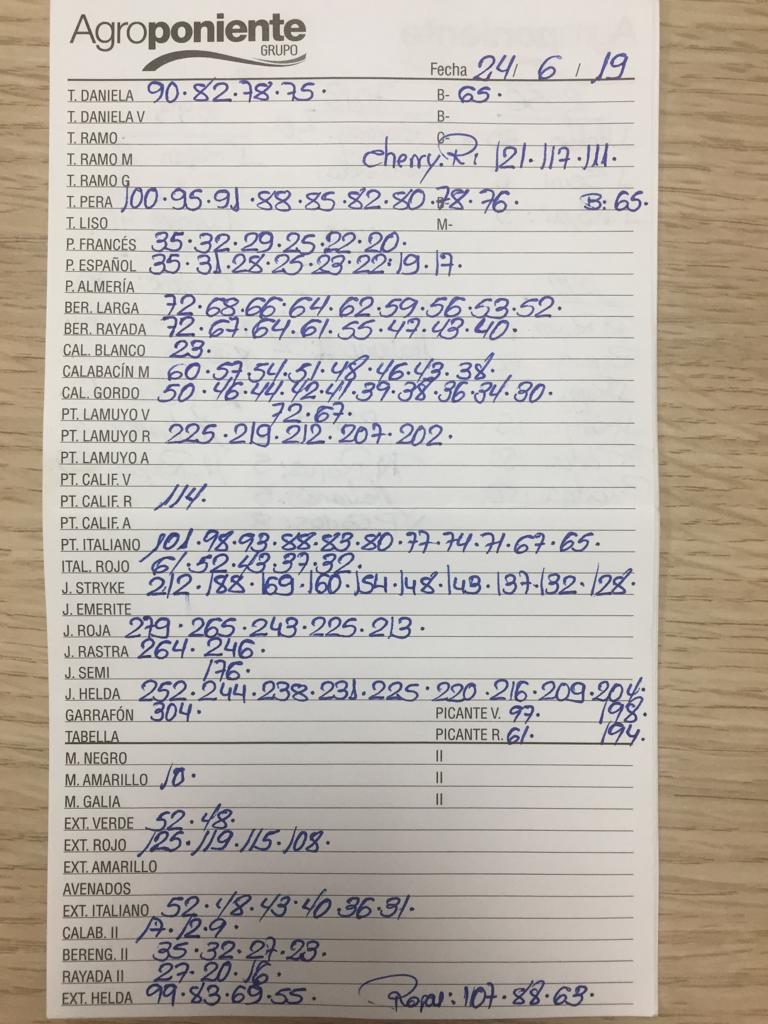 Agroponiente
GRUPO
Fecha 24/ 6 / 19
T. DANIELA 90·82·78·75· B- 65·
T. DANIELA V B-
T. RAMO C-
T. RAMO M Cherry.R: 121·117·111·
T. RAMO G
T. PERA 100·95·91·88·85·82·80·78·76· B: 65·
T. LISO M-
P. FRANCÉS 35·32·29·25·22·20·
P. ESPAÑOL 35·31·28·25·23·22·19·17·
P. ALMERÍA
BER. LARGA 72·68·66·64·62·59·56·53·52·
BER. RAYADA 72·67·64·61·55·47·43·40·
CAL. BLANCO 23·
CALABACÍN M 60·57·54·51·48·46·43·38·
CAL. GORDO 50·46·44·42·41·39·38·36·34·30·
PT. LAMUYO V 72·67·
PT. LAMUYO R 225·219·212·207·202·
PT. LAMUYO A
PT. CALIF. V
PT. CALIF. R 114·
PT. CALIF. A
PT. ITALIANO 101·98·93·88·83·80·77·74·71·67·65·
ITAL. ROJO 61·52·43·37·32·
J. STRYKE 212·188·169·160·154·148·143·137·132·128·
J. EMERITE
J. ROJA 279·265·243·225·213·
J. RASTRA 264·246·
J. SEMI 176·
J. HELDA 252·244·238·231·225·220·216·209·204·
GARRAFÓN 304· PICANTE V. 97· 198·
TABELLA PICANTE R. 61· 194·
M. NEGRO II
M. AMARILLO 10· II
M. GALIA II
EXT. VERDE 52·48·
EXT. ROJO 125·119·115·108·
EXT. AMARILLO
AVENADOS
EXT. ITALIANO 52·48·43·40·36·31·
CALAB. II 17·12·9·
BERENG. II 35·32·27·23·
RAYADA II 27·20·16·
EXT. HELDA 99·83·69·55· Rojas: 107·88·63·